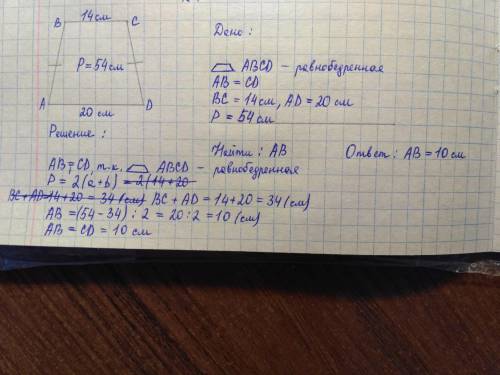 14 см
B C
P = 54 см
A D
20 см
Дано:
ABCD – равнобедренная
AB = CD
BC = 14 см, AD = 20 см
P = 54 см
Найти: AB
Решение:
AB = CD, т.к. ABCD – равнобедренная
P = 2(a+b) = 2(14+20
BC + AD = 14 + 20 = 34 (см) BC + AD = 14 + 20 = 34 (см)
AB = (54 - 34) : 2 = 20 : 2 = 10 (см)
AB = CD = 10 см
Ответ: AB = 10 см